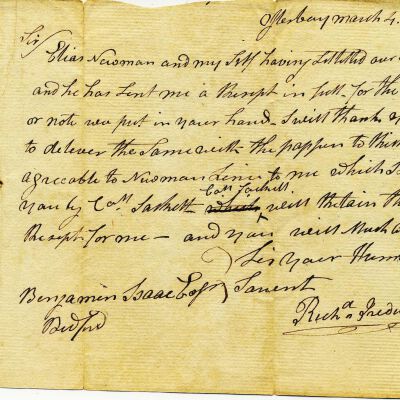 Oysterbay march 4.
Sir
Elias Newman and my Self having Settled our
and he has Sent me a Recept in full for the
or note we put in your hand I will thank y
to deliver the Same with the papper to this
agreeable to Newman Line to me which
Capt Sackett
you by Capt Sackett which will Retain th
Recept for me — and you will Much
Sir Your Hum
Benjamin Isaac Esqr Servent
Bedford
Richd